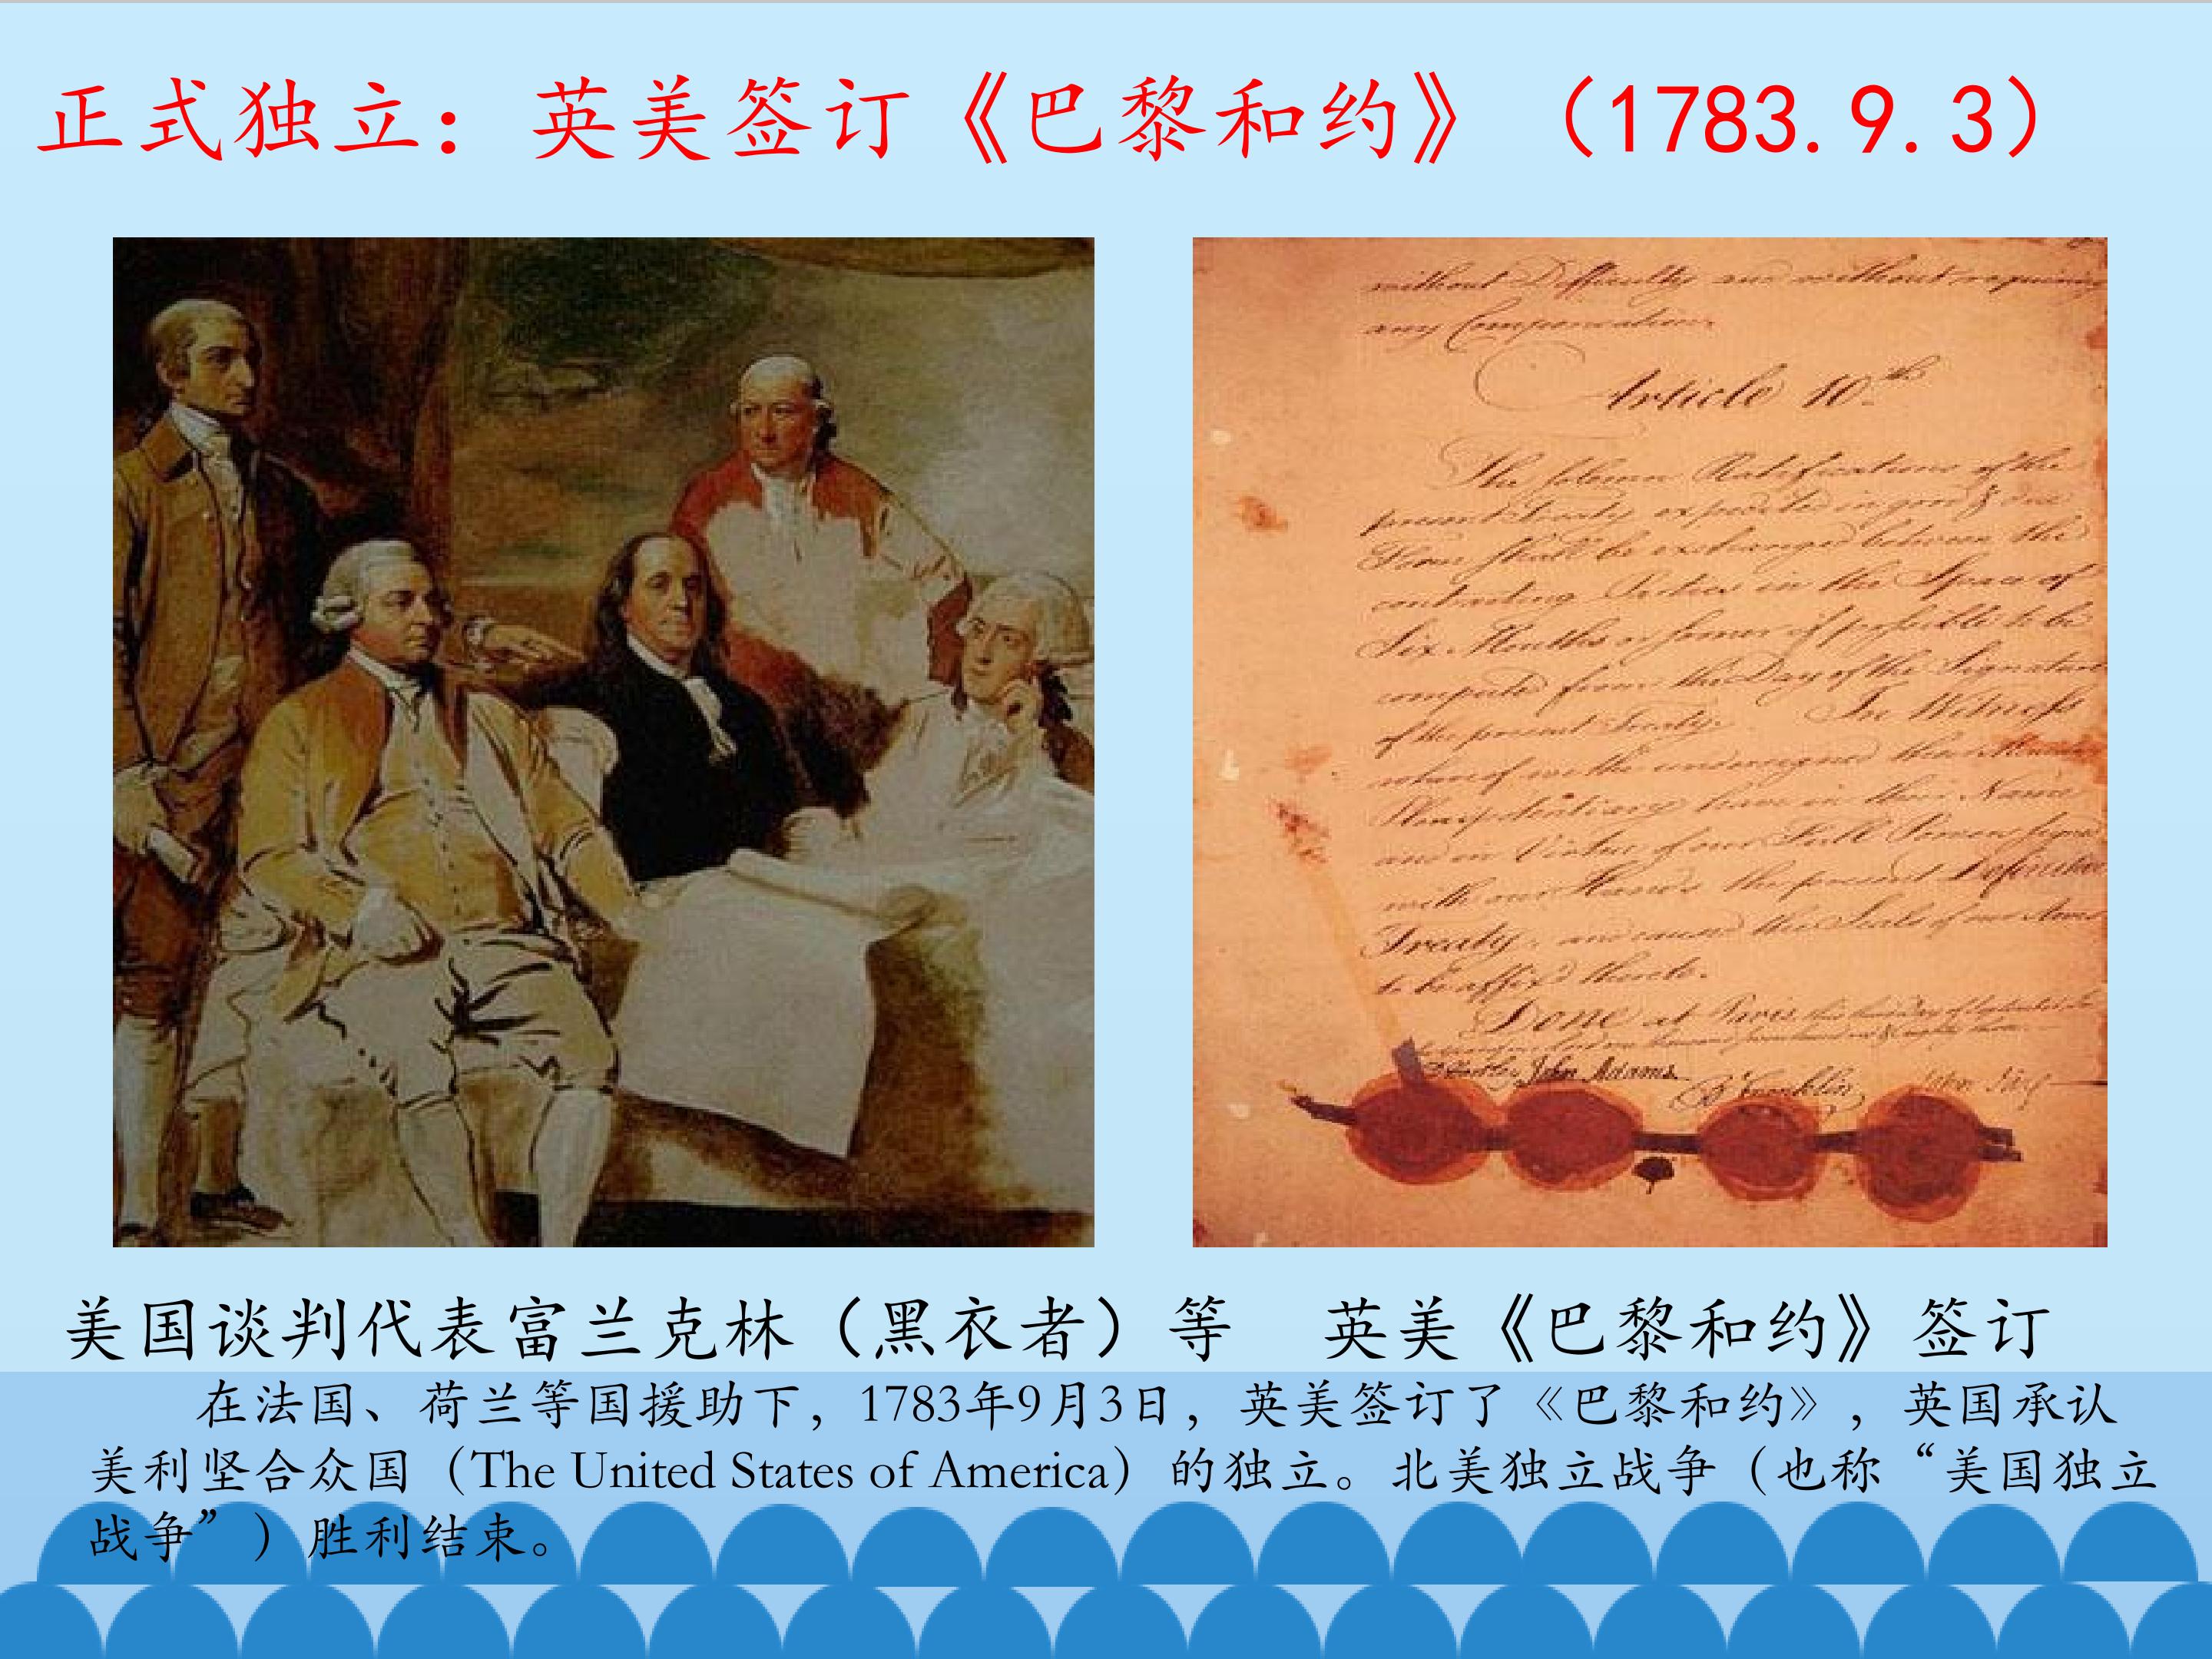 正式独立：英美签订《巴黎和约》（1783.9.3）
without Difficulty and without requiring
any Compensation.
Article 10th
The solemn Ratifications of the
present Treaty expedited in good & due
Form shall be exchanged between the
contracting Parties in the Space of
Six Months or sooner if possible to be
computed from the Day of the Signature
of the present Treaty. In Witness
whereof we the undersigned their Ministers
Plenipotentiary have in their Name
and in Virtue of our Full Powers signed
with our Hands the present Definitive
Treaty, and caused the Seals of our Arms
to be affix'd thereto.
Done at Paris
John Adams
B Franklin
John Jay
美国谈判代表富兰克林（黑衣者）等
英美《巴黎和约》签订
在法国、荷兰等国援助下，1783年9月3日，英美签订了《巴黎和约》，英国承认
美利坚合众国（The United States of America）的独立。北美独立战争（也称“美国独立
战争”）胜利结束。